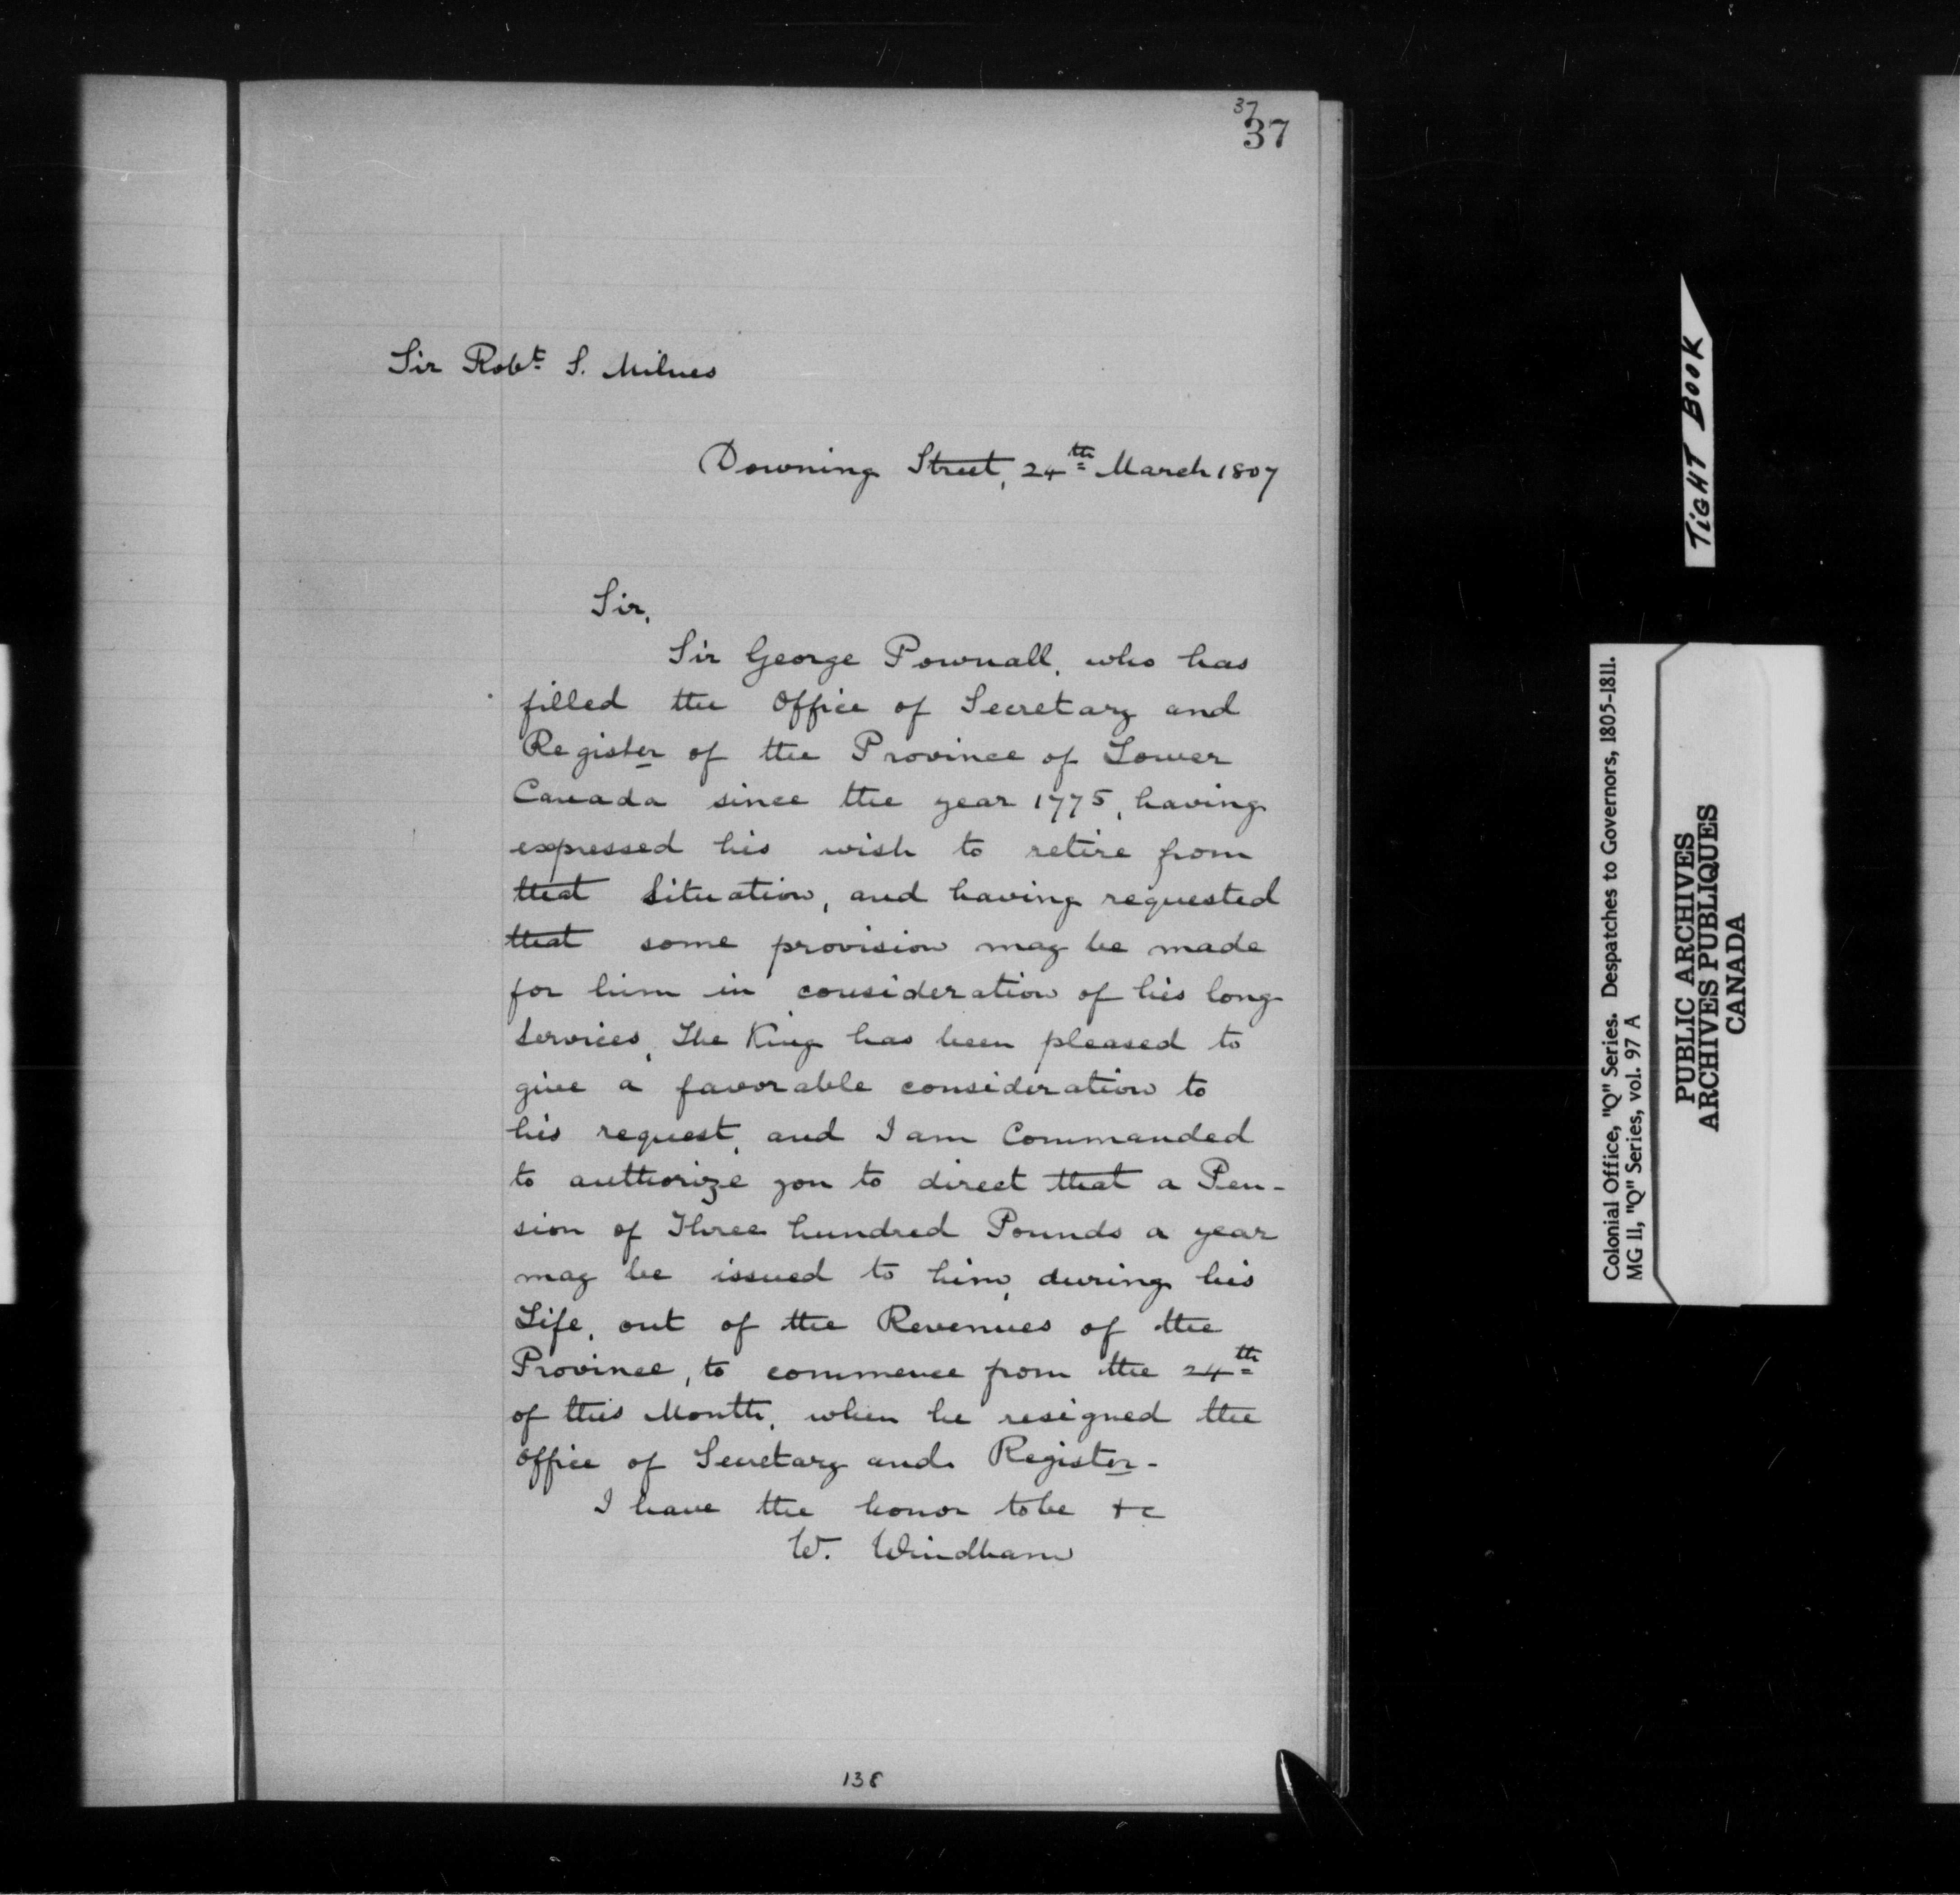 37
37
Sir Robt S. Milnes
Downing Street, 24th March 1807
Sir,
Sir George Pownall, who has
filled the Office of Secretary and
Register of the Province of Lower
Canada since the year 1775, having
expressed his wish to retire from
that Situation, and having requested
that some provision may be made
for him in consideration of his long
Services, The King has been pleased to
give a favorable consideration to
his request, and I am Commanded
to authorize you to direct that a Pen-
sion of Three hundred Pounds a year
may be issued to him, during his
Life, out of the Revenues of the
Province, to commence from the 24th
of this Month, when he resigned the
Office of Secretary and Register-
I have the honor to be +c
W. Windham
138
TIGHT BOOK
Colonial Office, "Q" Series. Despatches to Governors, 1805-1811.
MG 11, "Q" Series, vol. 97 A
PUBLIC ARCHIVES
ARCHIVES PUBLIQUES
CANADA